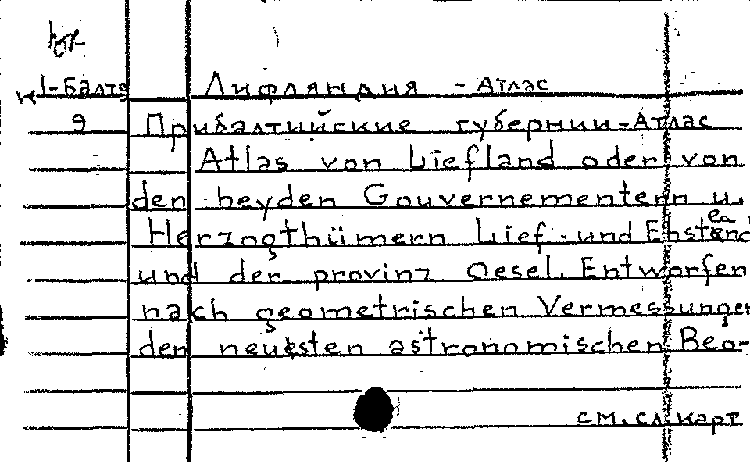 I-Балтэ Лифляндия - Атлас
9 Прибалтийские губернии-Атлас
Atlas von Liefland oder von
den beyden Gouvernementern u.
Herzogthümern Lief-und Ehstand
und der provinz Oesel. Entworfen
nach geometrischen Vermessungen
den neuesten astronomischen Beo-
см. сл. карт